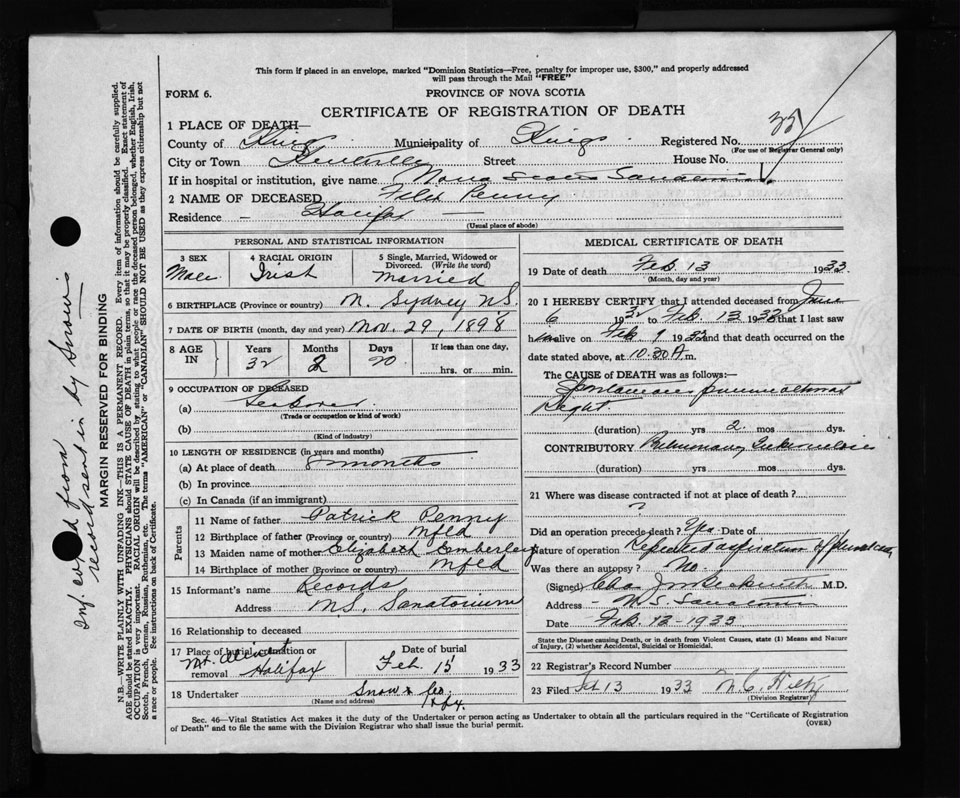 This form if placed in an envelope, marked "Dominion Statistics—Free, penalty for improper use, $300," and properly addressed
will pass through the Mail "FREE"
FORM 6.
PROVINCE OF NOVA SCOTIA
CERTIFICATE OF REGISTRATION OF DEATH
1 PLACE OF DEATH—
County of Kings Municipality of Kings Registered No. 35
(For use of Registrar General only)
City or Town Kentville Street House No.
If in hospital or institution, give name Nova Scotia Sanatorium
2 NAME OF DECEASED Felix Penny
Residence — Halifax —
(Usual place of abode)
PERSONAL AND STATISTICAL INFORMATION
3 SEX Male
4 RACIAL ORIGIN Irish
5 Single, Married, Widowed or Divorced. (Write the word) Married
6 BIRTHPLACE (Province or country) N. Sydney N.S.
7 DATE OF BIRTH (month, day and year) Nov. 29, 1898
8 AGE IN Years 32 Months 2 Days 20 If less than one day, hrs. or min.
9 OCCUPATION OF DECEASED
(a)
(Trade or occupation or kind of work)
(b)
(Kind of industry)
10 LENGTH OF RESIDENCE (in years and months)
(a) At place of death 8 months
(b) In province
(c) In Canada (if an immigrant)
Parents
11 Name of father Patrick Penny
12 Birthplace of father (Province or country) Nfld
13 Maiden name of mother Elizabeth Emberley
14 Birthplace of mother (Province or country) Nfld
15 Informant's name Records
Address N.S. Sanatorium
16 Relationship to deceased
17 Place of burial, cremation or removal Mt. Olivet Halifax
Date of burial Feb. 15 1933
18 Undertaker Snow & Co. Hfx.
(Name and address)
MEDICAL CERTIFICATE OF DEATH
19 Date of death Feb 13 1933
(Month, day and year)
20 I HEREBY CERTIFY that I attended deceased from June
6 1932 to Feb. 13 1933 that I last saw
him alive on Feb. 9 1933 and that death occurred on the
date stated above, at 10.30 A.m.
The CAUSE of DEATH was as follows:—
Spontaneous pneumothorax
Right.
(duration) yrs 2. mos dys.
CONTRIBUTORY Pulmonary Tuberculosis
(duration) yrs mos dys.
21 Where was disease contracted if not at place of death?
?
Did an operation precede death? Yes Date of
Nature of operation Repeated aspiration of
Was there an autopsy? No.
(Signed) M.D.
Address N.S. Sanatorium
Date Feb. 13-1933
State the Disease causing Death, or in death from Violent Causes, state (1) Means and Nature
of Injury, (2) whether Accidental, Suicidal or Homicidal.
22 Registrar's Record Number
23 Filed Feb 13 1933
(Division Registrar)
Sec. 46—Vital Statistics Act makes it the duty of the Undertaker or person acting as Undertaker to obtain all the particulars required in the "Certificate of Registration
of Death" and to file the same with the Division Registrar who shall issue the burial permit.
(OVER)
MARGIN RESERVED FOR BINDING
N.B.—WRITE PLAINLY WITH UNFADING INK—THIS IS A PERMANENT RECORD. Every item of information should be carefully supplied.
AGE should be stated EXACTLY. PHYSICIANS should STATE CAUSE OF DEATH in plain terms, so that it may be properly classified. Exact statement of
OCCUPATION is very important. RACIAL ORIGIN will be described by stating to what people or race the deceased person belonged, whether English, Irish,
Scotch, French, German, Russian, Ruthenian, etc. The terms "AMERICAN" or "CANADIAN" SHOULD NOT BE USED as they express citizenship but not
a race or people. See instructions on back of Certificate.
from
record sent in by Snow's